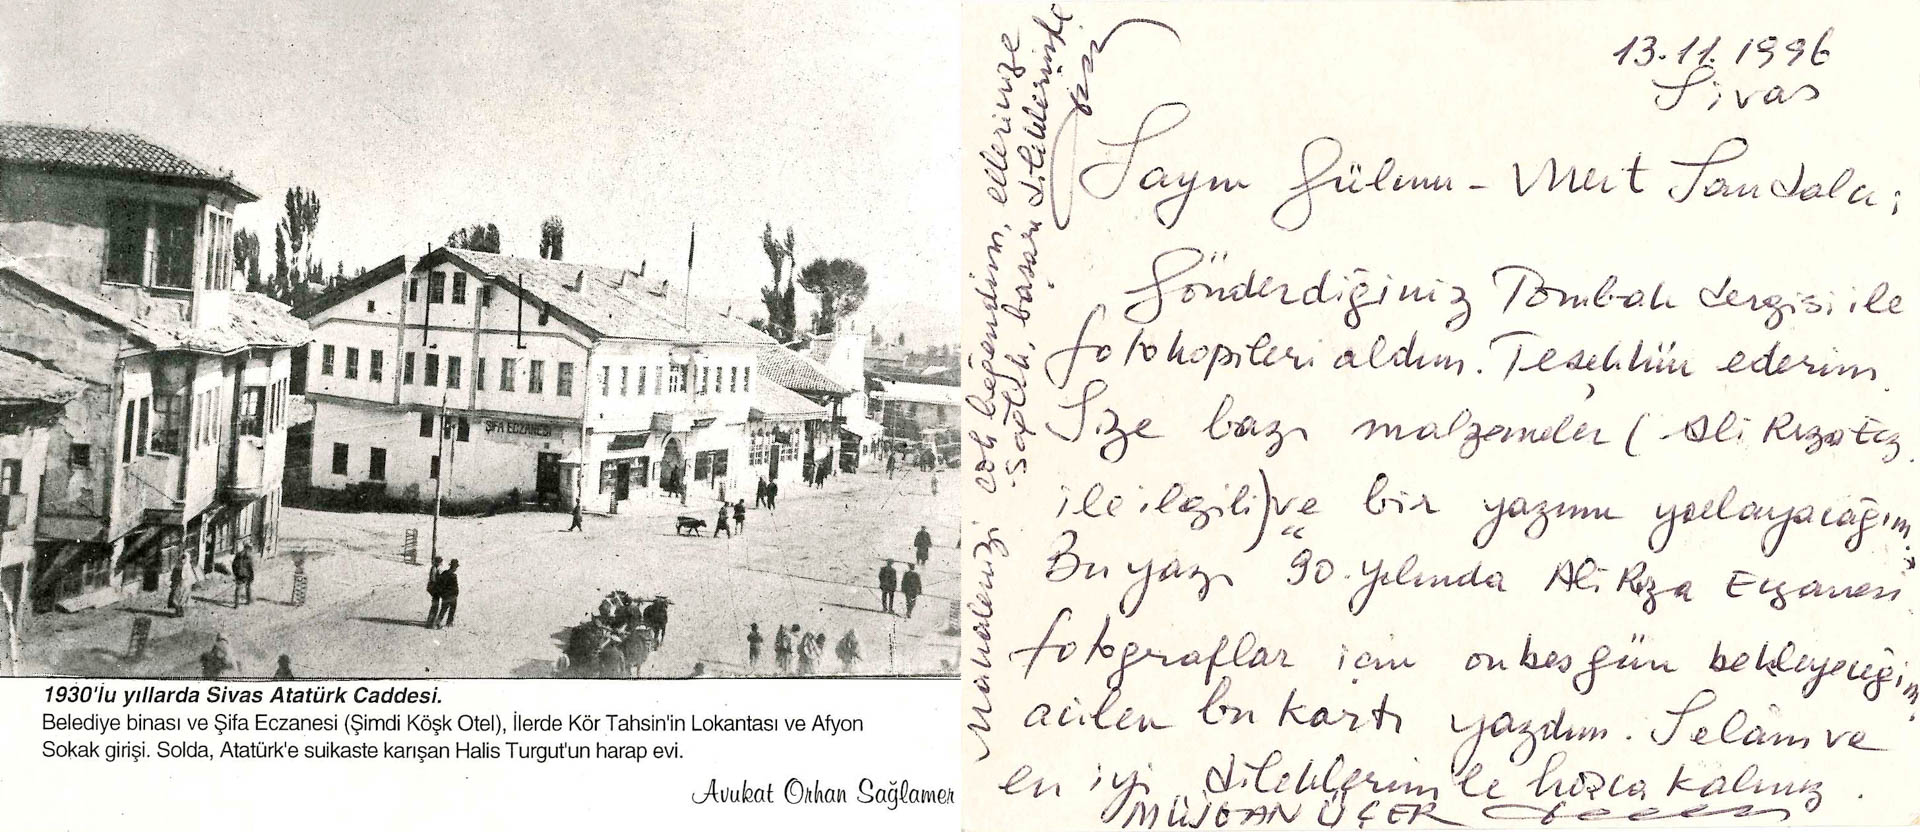 ŞİFA ECZANESİ
1930'lu yıllarda Sivas Atatürk Caddesi.
Belediye binası ve Şifa Eczanesi (Şimdi Köşk Otel), İlerde Kör Tahsin'in Lokantası ve Afyon
Sokak girişi. Solda, Atatürk'e suikaste karışan Halis Turgut'un harap evi.
Avukat Orhan Sağlamer
13.11.1996
Sivas
Sayın Gülnur - Mert Sandalcı;
Gönderdiğiniz Tombak dergisi ile
fotokopileri aldım. Teşekkür ederim.
Size bazı malzemeler (Ali Rıza Ecz.
ile ilgili) ve bir yazımı yollayacağım.
Bu yazı "90. yılında Ali Rıza Eczanesi"
fotograflar için onbeş gün bekleyeceğim,
acilen bu kartı yazdım. Selâm ve
en iyi dileklerimle hoşca kalınız.
MÜJGAN ÜÇER
Makalenizi çok beğendim, ellerinize
sağlık, başarı dileklerimle